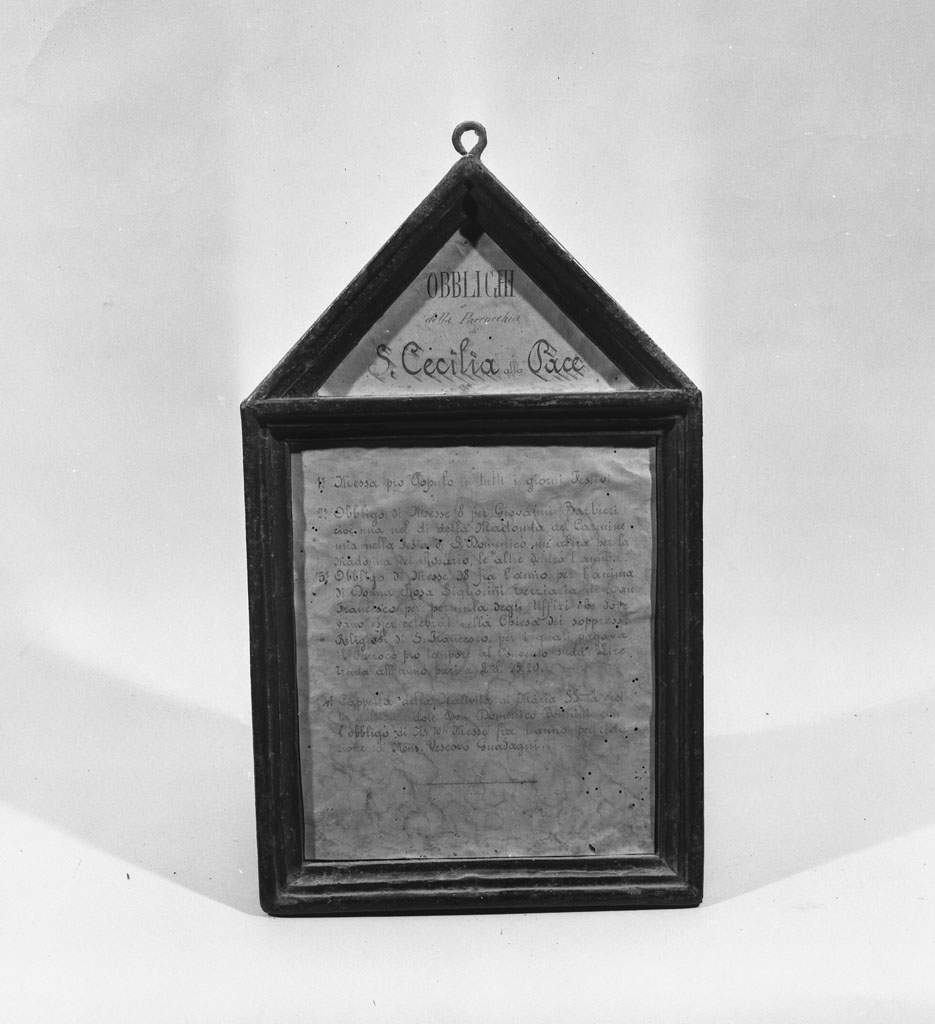 OBBLIGHI
della Parrocchia
di
S. Cecilia alla Pace
1º Messa pro Popolo in tutti i giorni Festivi
2º Obbligo di Messe 8 per Giovanni Barbieri
cioè una nel dì della Madonna del Carmine
una nella festa di S. Domenico, un'altra per la
Madonna del Rosario, le altre entro l'anno.
3º Obbligo di Messe 38 fra l'anno per l'anima
di Donna Rosa Sigliorini terziaria di
Francesco per permuta degli Uffizi che dove
vano esser celebrati nella Chiesa dei soppressi
Religiosi di S. Francesco, per i quali pagava
il Parroco pro tempore
all'anno pari a
4º Cappella della Natività di Maria SSma
dote Don Domenico
l'obbligo di Messe fra l'anno per
zione di Mons. Vescovo Guadagni.